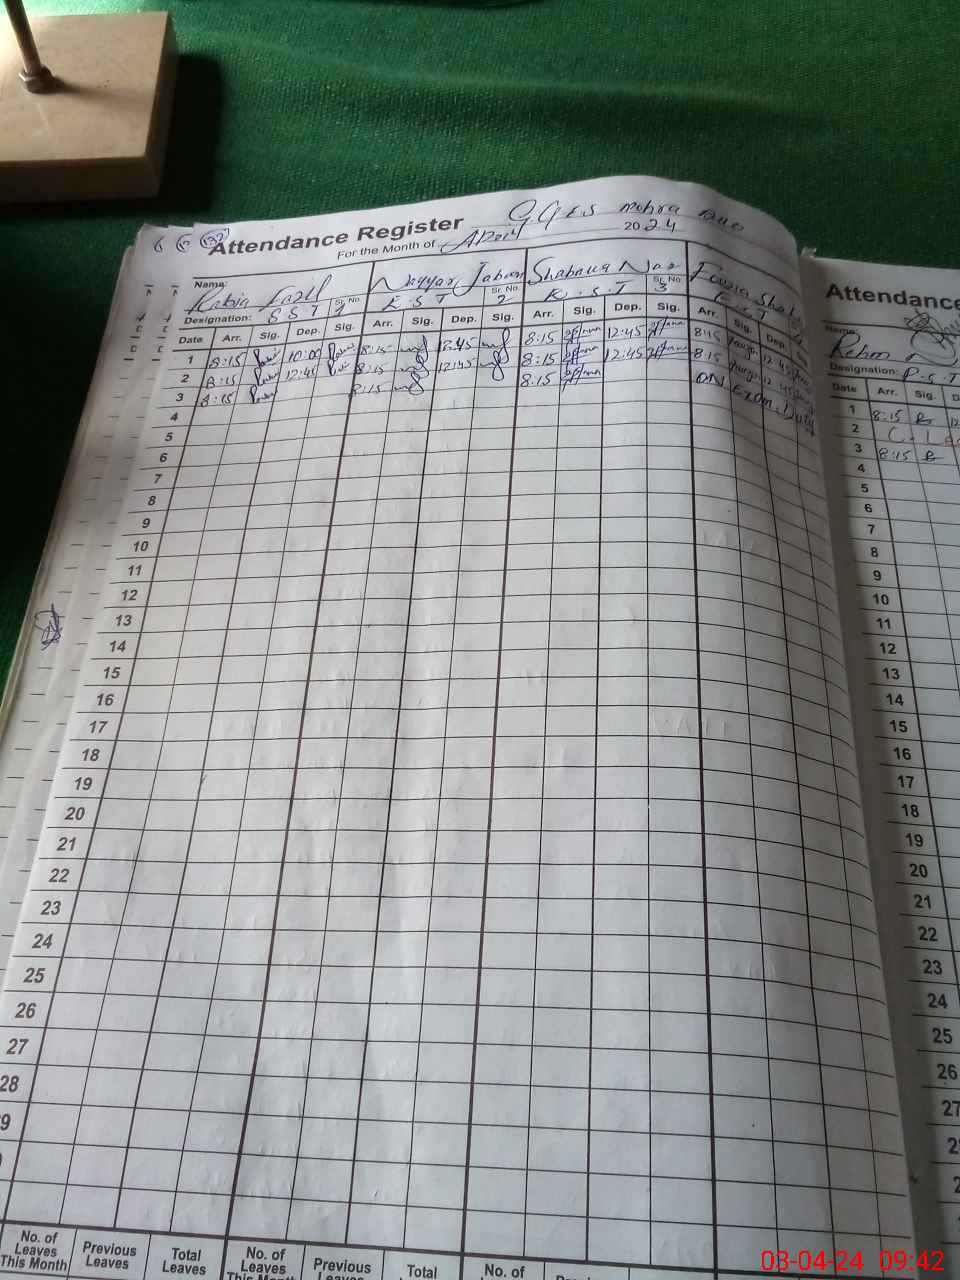 Attendance Register GGES Mohra
For the Month of April 2024
Name: Rabia Fazil Nayyar Jabeen Shabana Naz Fouzia
Designation: S S T Sr. No. 1 E.S.T Sr. No. 2 E.S.T Sr. No. 3 E.S.T
Date Arr. Sig. Dep. Sig. Arr. Sig. Dep. Sig. Arr. Sig. Dep. Sig. Arr. Sig. Dep.
1 8:15 10:00 8:15 12:45 8:15 12:45 8:15 12:45
2 8:15 12:45 8:15 12:45 8:15 12:45 8:15 12:45
3 8:15 8:15 8:15 ON Exam Duty
4
5
6
7
8
9
10
11
12
13
14
15
16
17
18
19
20
21
22
23
24
25
26
27
28
9
No. of Leaves This Month Previous Leaves Total Leaves No. of Leaves This Month Previous Leaves Total No. of
Attendance
Name:
Designation: P.S.T
Date Arr. Sig. D
1 8:15
2 C. Lea
3 8:15
4
5
6
7
8
9
10
11
12
13
14
15
16
17
18
19
20
21
22
23
24
25
26
27
03-04-24 09:42